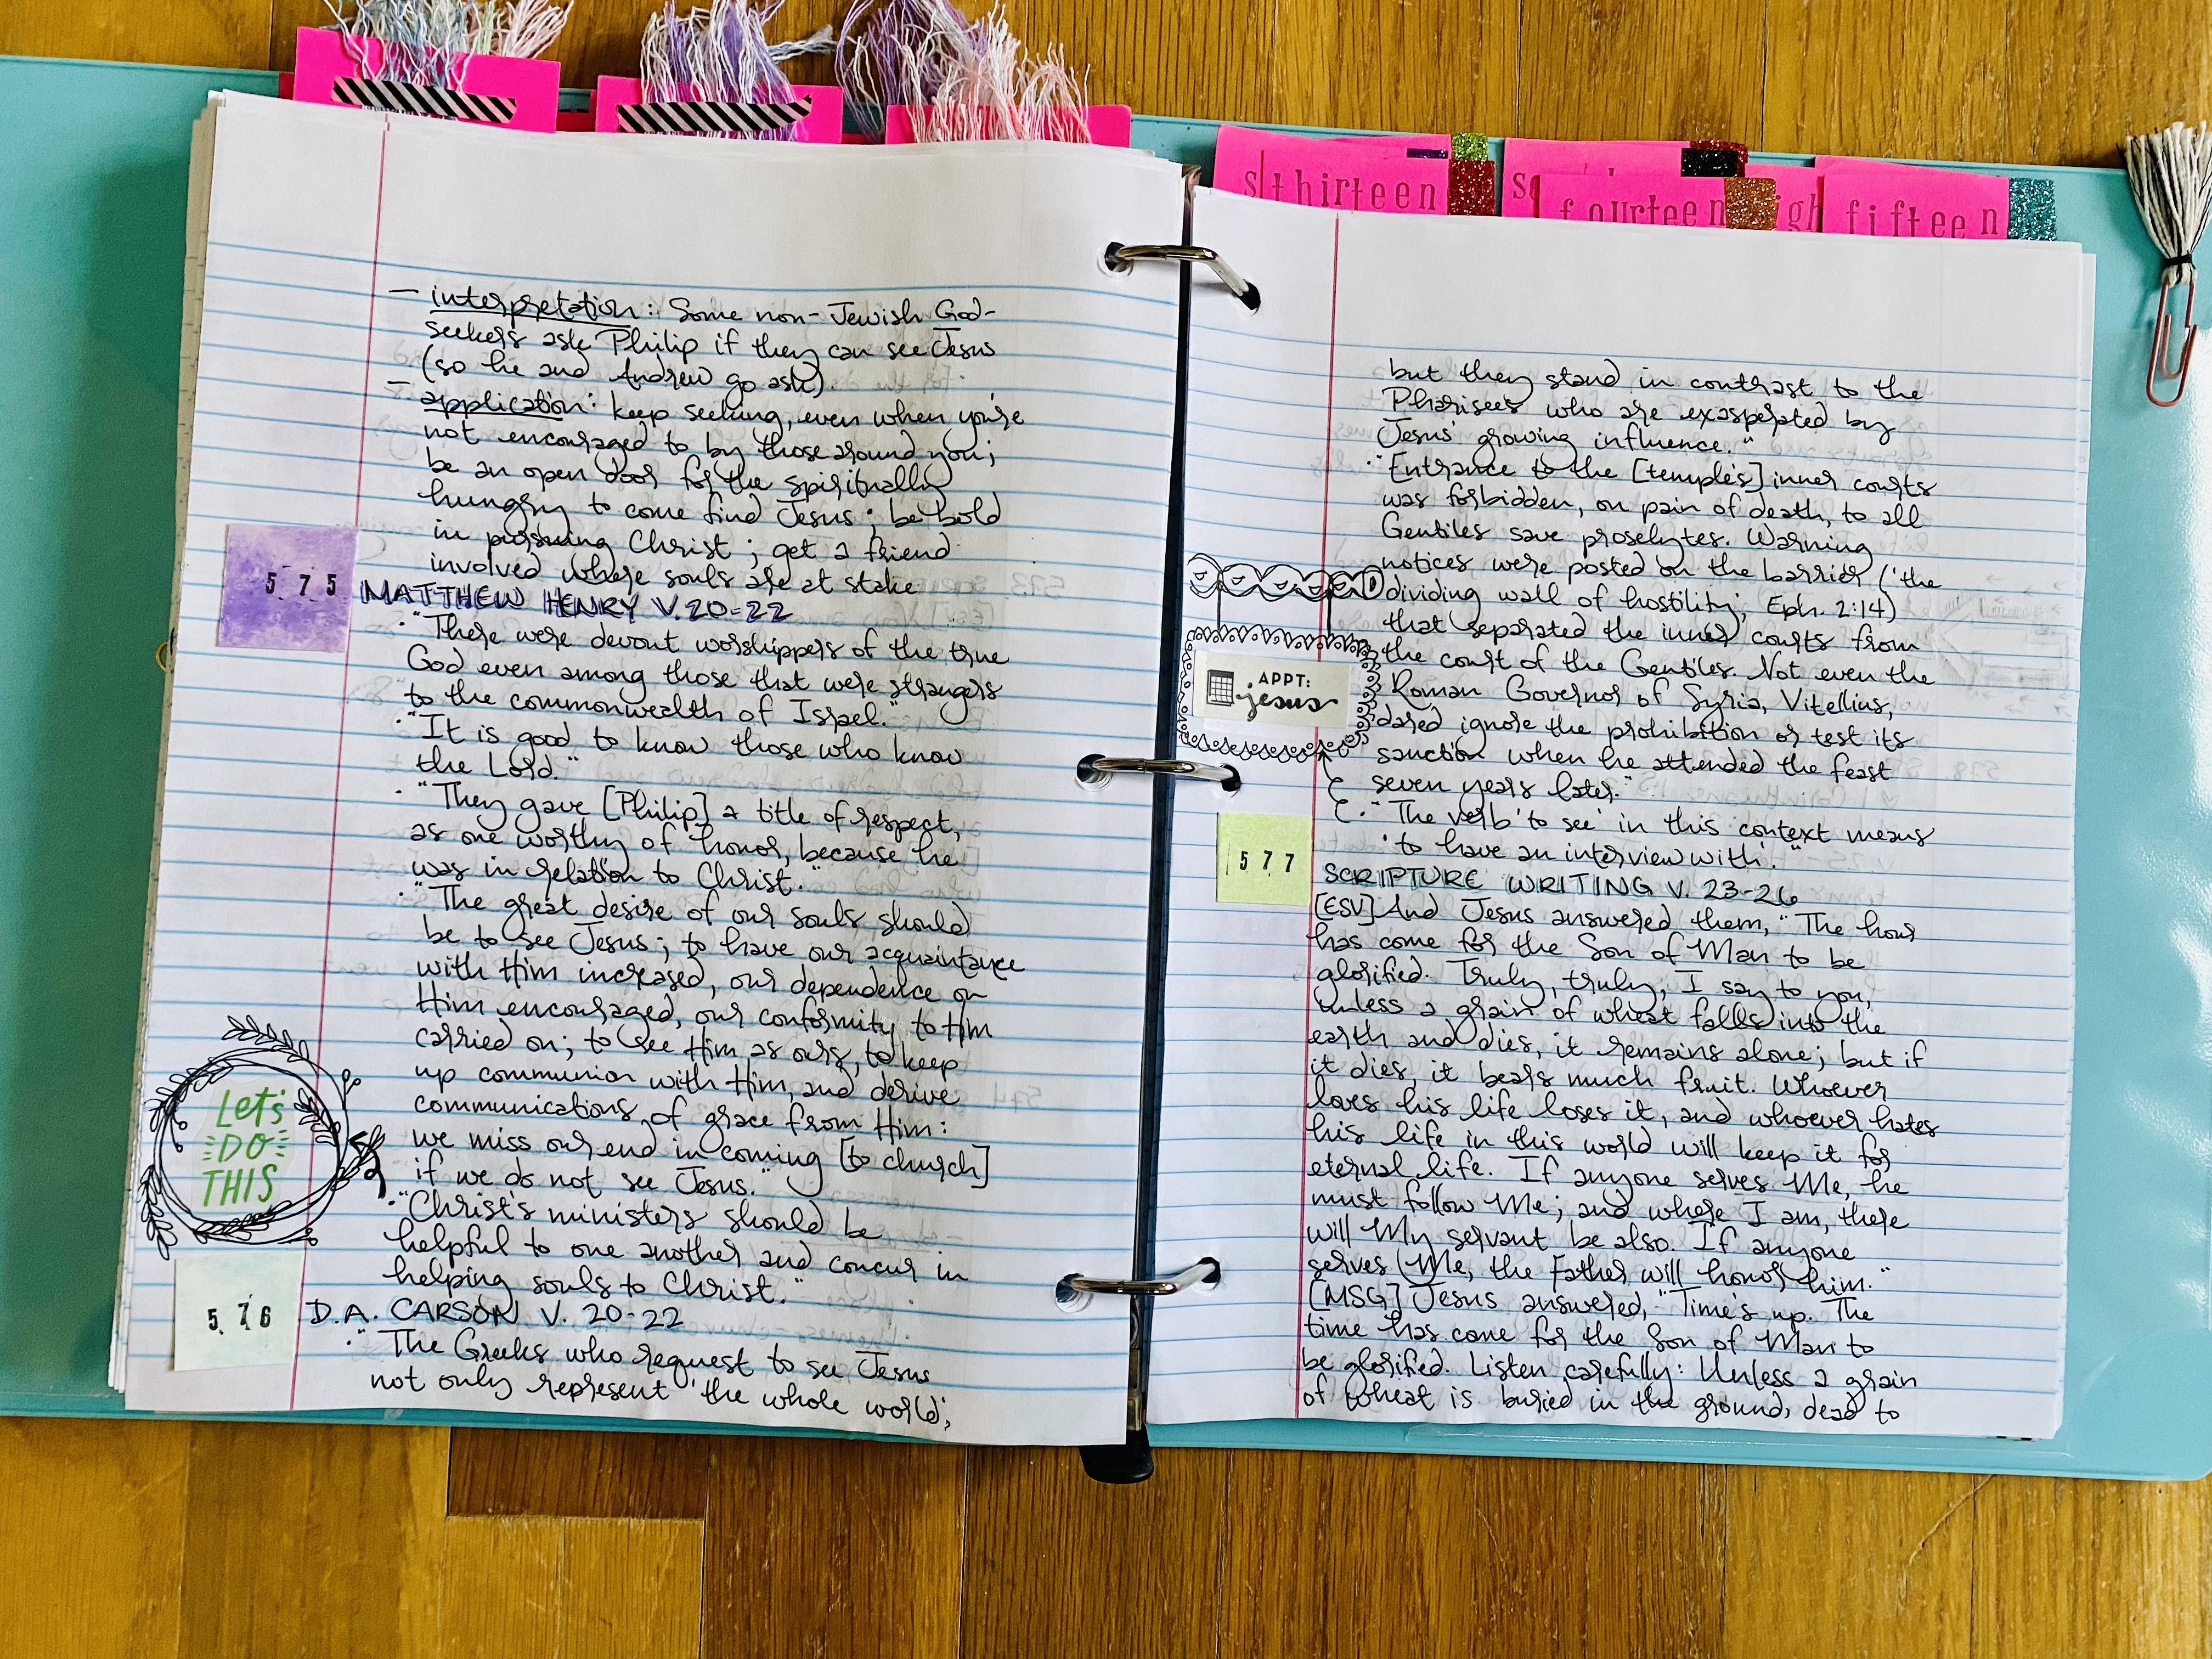 sthirteen
fourteen
igh
fifteen
— interpretation: Some non-Jewish God-
seekers ask Philip if they can see Jesus
(so he and Andrew go ask).
— application: keep seeking, even when you're
not encouraged to by those around you;
be an open door for the spiritually
hungry to come find Jesus; be bold
in pursuing Christ; get a friend
involved where souls are at stake
575
MATTHEW HENRY V. 20-22
· "There were devout worshippers of the true
God even among those that were strangers
to the commonwealth of Israel."
· "It is good to know those who know
the Lord."
· "They gave [Philip] a title of respect,
as one worthy of honor, because he
was in relation to Christ."
· "The great desire of our souls should
be to see Jesus; to have our acquaintance
with Him increased, our dependence on
Him encouraged, our conformity to Him
carried on; to see Him as ours, to keep
up communion with Him, and derive
communications of grace from Him:
we miss our end in coming [to church]
if we do not see Jesus."
Let's
DO
THIS
· "Christ's ministers should be
helpful to one another and concur in
helping souls to Christ."
576
D.A. CARSON V. 20-22
· "The Greeks who request to see Jesus
not only represent 'the whole world',
but they stand in contrast to the
Pharisees who are exasperated by
Jesus' growing influence."
· "Entrance to the [temple's] inner courts
was forbidden, on pain of death, to all
Gentiles save proselytes. Warning
notices were posted on the barrier ('the
dividing wall of hostility', Eph. 2:14)
that separated the inner courts from
the court of the Gentiles. Not even the
Roman Governor of Syria, Vitellius,
dared ignore the prohibition or test its
sanction when he attended the feast
seven years later."
APPT:
jesus
· "The verb 'to see' in this context means
'to have an interview with'."
577
SCRIPTURE WRITING V. 23-26
[ESV] And Jesus answered them, "The hour
has come for the Son of Man to be
glorified. Truly, truly, I say to you,
unless a grain of wheat falls into the
earth and dies, it remains alone; but if
it dies, it bears much fruit. Whoever
loves his life loses it, and whoever hates
his life in this world will keep it for
eternal life. If anyone serves Me, he
must follow Me; and where I am, there
will My servant be also. If anyone
serves Me, the Father will honor him."
[MSG] Jesus answered, "Time's up. The
time has come for the Son of Man to
be glorified. Listen carefully: Unless a grain
of wheat is buried in the ground, dead to